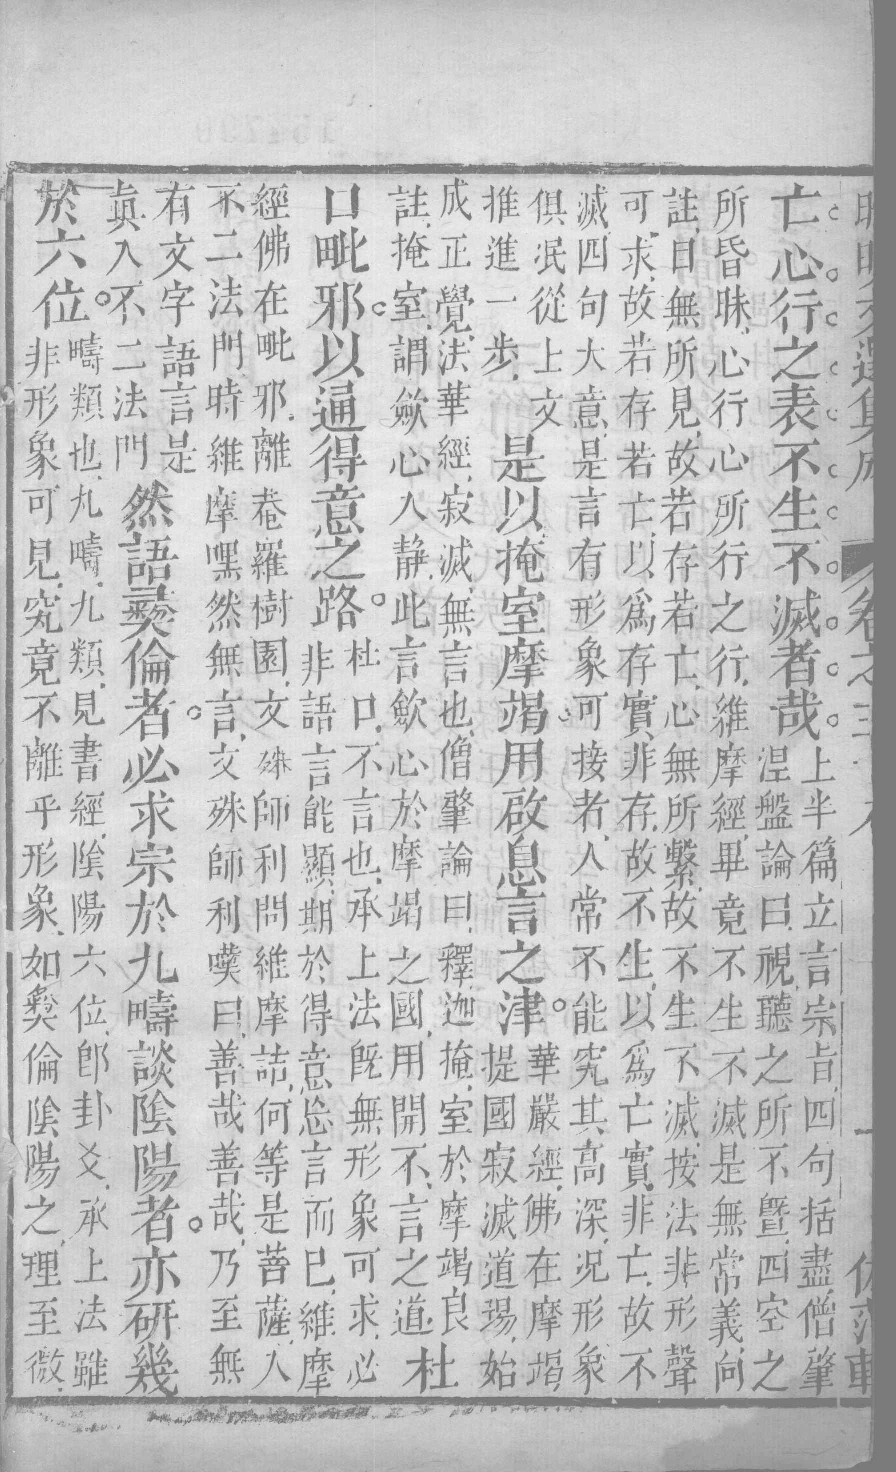 卷之三
亡心行之表不生不滅者哉。上半篇立言宗旨四句括盡僧肇
涅盤論曰視聽之所不曁四空之
所昏昧心行心所行之行維摩經畢竟不生不滅是無常義向
註目無所見故若存若亡心無所繫故不生不滅按法非形聲
可求故若存若亡以爲存實非存故不生以爲亡實非亡故不
滅四句大意是言有形象可接者人常不能究其高深况形象
俱泯從上文
推進一步
是以掩室摩竭用啟息言之津。華嚴經佛在摩竭
提國寂滅道場始
成正覺法華經寂滅無言也僧肇論曰釋迦掩室於摩竭良
註掩室謂歛心入静此言歛心於摩竭之國用開不言之道杜
口毗邪。以通得意之路。杜口不言也承上法旣無形象可求必
非語言能顯期於得意忘言而已維摩
經佛在毗邪離菴羅樹園文殊師利問維摩詰何等是菩薩入
不二法門時維摩嘿然無言文殊師利嘆曰善哉善哉乃至無
有文字語言是
眞入不二法門
然語彛倫者。必求宗於九疇談隂陽者。亦研幾
於六位。疇類也九疇九類見書經隂陽六位卽卦爻承上法雖
非形象可見究竟不離乎形象如彛倫隂陽之理至微